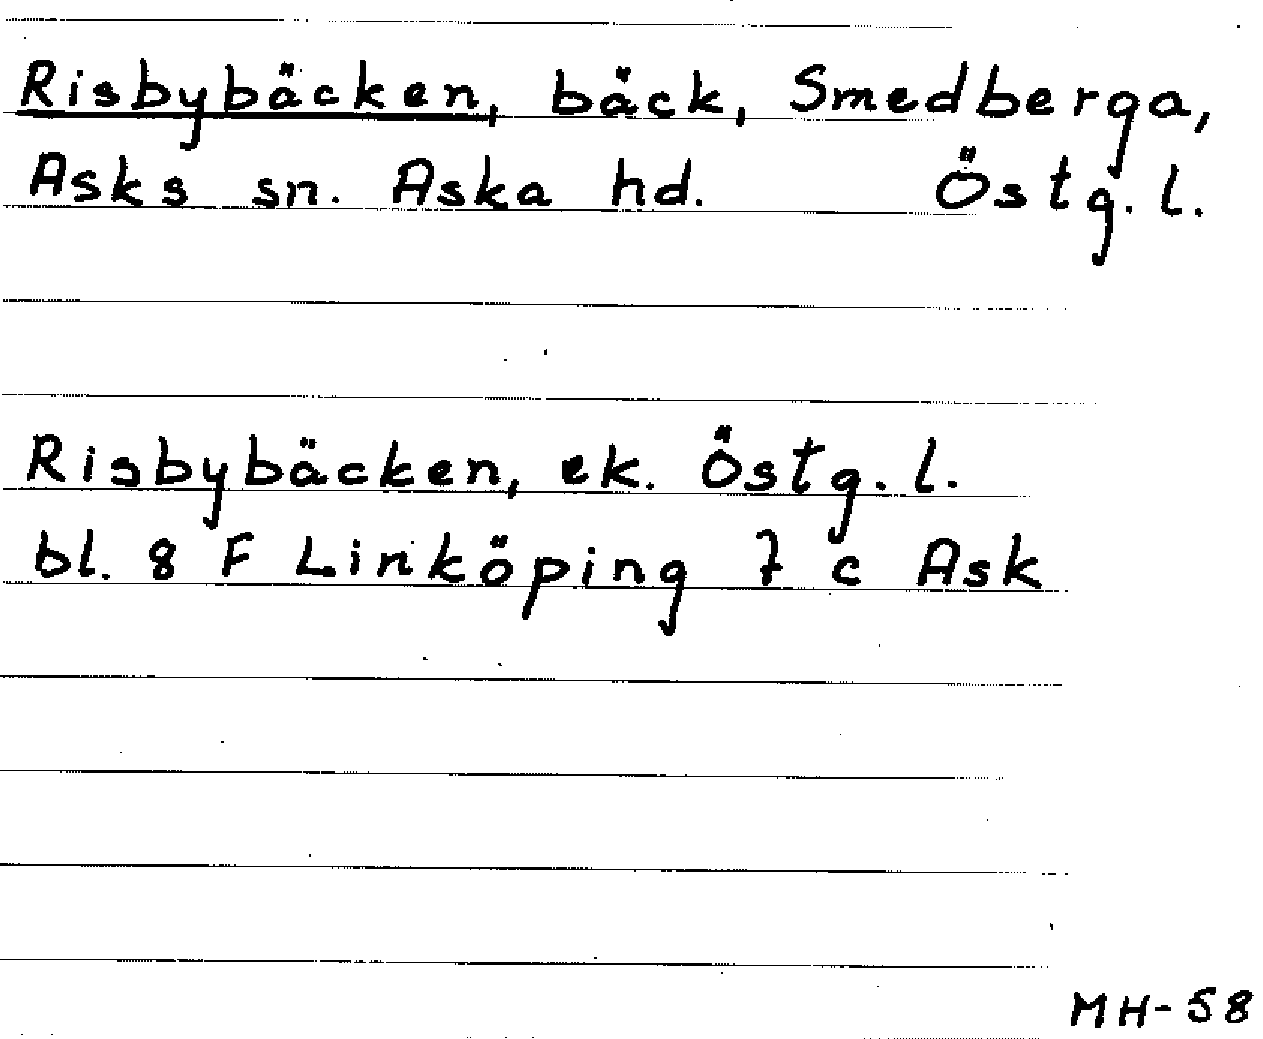 Risbybäcken, bäck, Smedberga,
Asks sn. Aska hd. Östg. l.
Risbybäcken, ek. Östg. l.
bl. 8 F Linköping 7 c Ask
MH-58